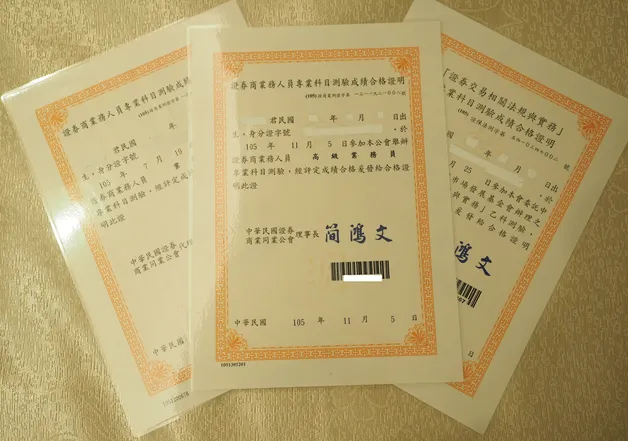 證券商業務人員專業科目測驗成績
君民國 年
生，身分證字號
105 年 7 月 19
證券商業務人員
專業科目測驗，經評定成
明此證
中華民國證券
商業同業公會
中華民國
證券商業務人員專業科目測驗成績合格證明
君民國 年 月 日出
生，身分證字號 ，於
105 年 11 月 5 日參加本公會舉辦
證券商業務人員 高級業務員
專業科目測驗，經評定成績合格爰發給合格證
明此證
中華民國證券
商業同業公會 理事長 簡鴻文
中華民國 105 年 11 月 5 日
1051305201
「證券交易相關法規與實務」
業科目測驗成績合格證明
年 月 日出
月 25 日參加本會委託中
市場發展基金會辦理之
與實務」乙科測驗，
爰發給合格證明
鴻文
月 5 日